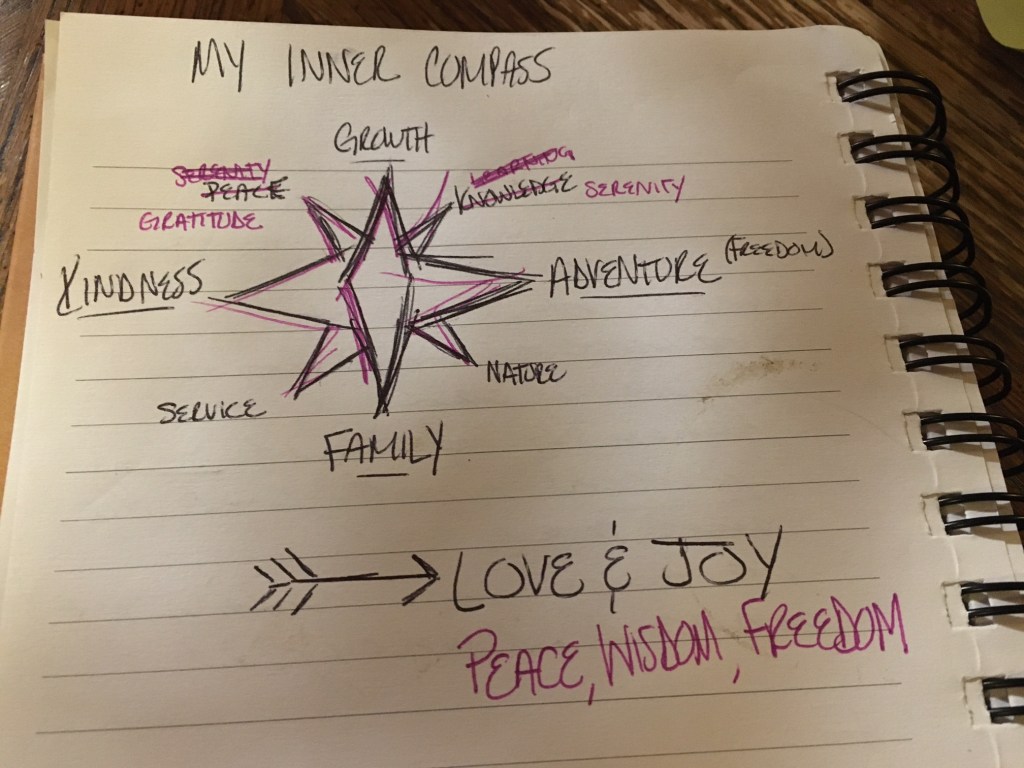 MY INNER COMPASS
GROWTH
SERENITY
PEACE
GRATITUDE
LEARNING
KNOWLEDGE SERENITY
KINDNESS
ADVENTURE (FREEDOM)
NATURE
SERVICE
FAMILY
LOVE & JOY
PEACE, WISDOM, FREEDOM